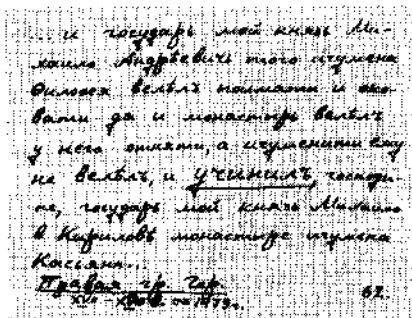 ... и государь мой князь Ми-
хаило Андрѣевичь того игумена
Филофея велѣлъ поимати и око-
вати да и монастирь велѣлъ
у него отняти, а игуменити ему
не велѣлъ, и учинилъ, господи-
не, государь мой князь Михаило
в Кириловѣ монастыре игумена
Касьяна...
Правая гр. Кир.
62.